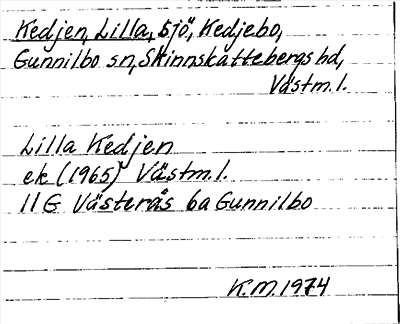 Kedjen, Lilla, sjö, Kedjebo,
Gunnilbo sn, Skinnskattebergs hd,
Västm. l.
Lilla Kedjen
ek (1965) Västm. l.
11 G Västerås 6a Gunnilbo
K.M. 1974